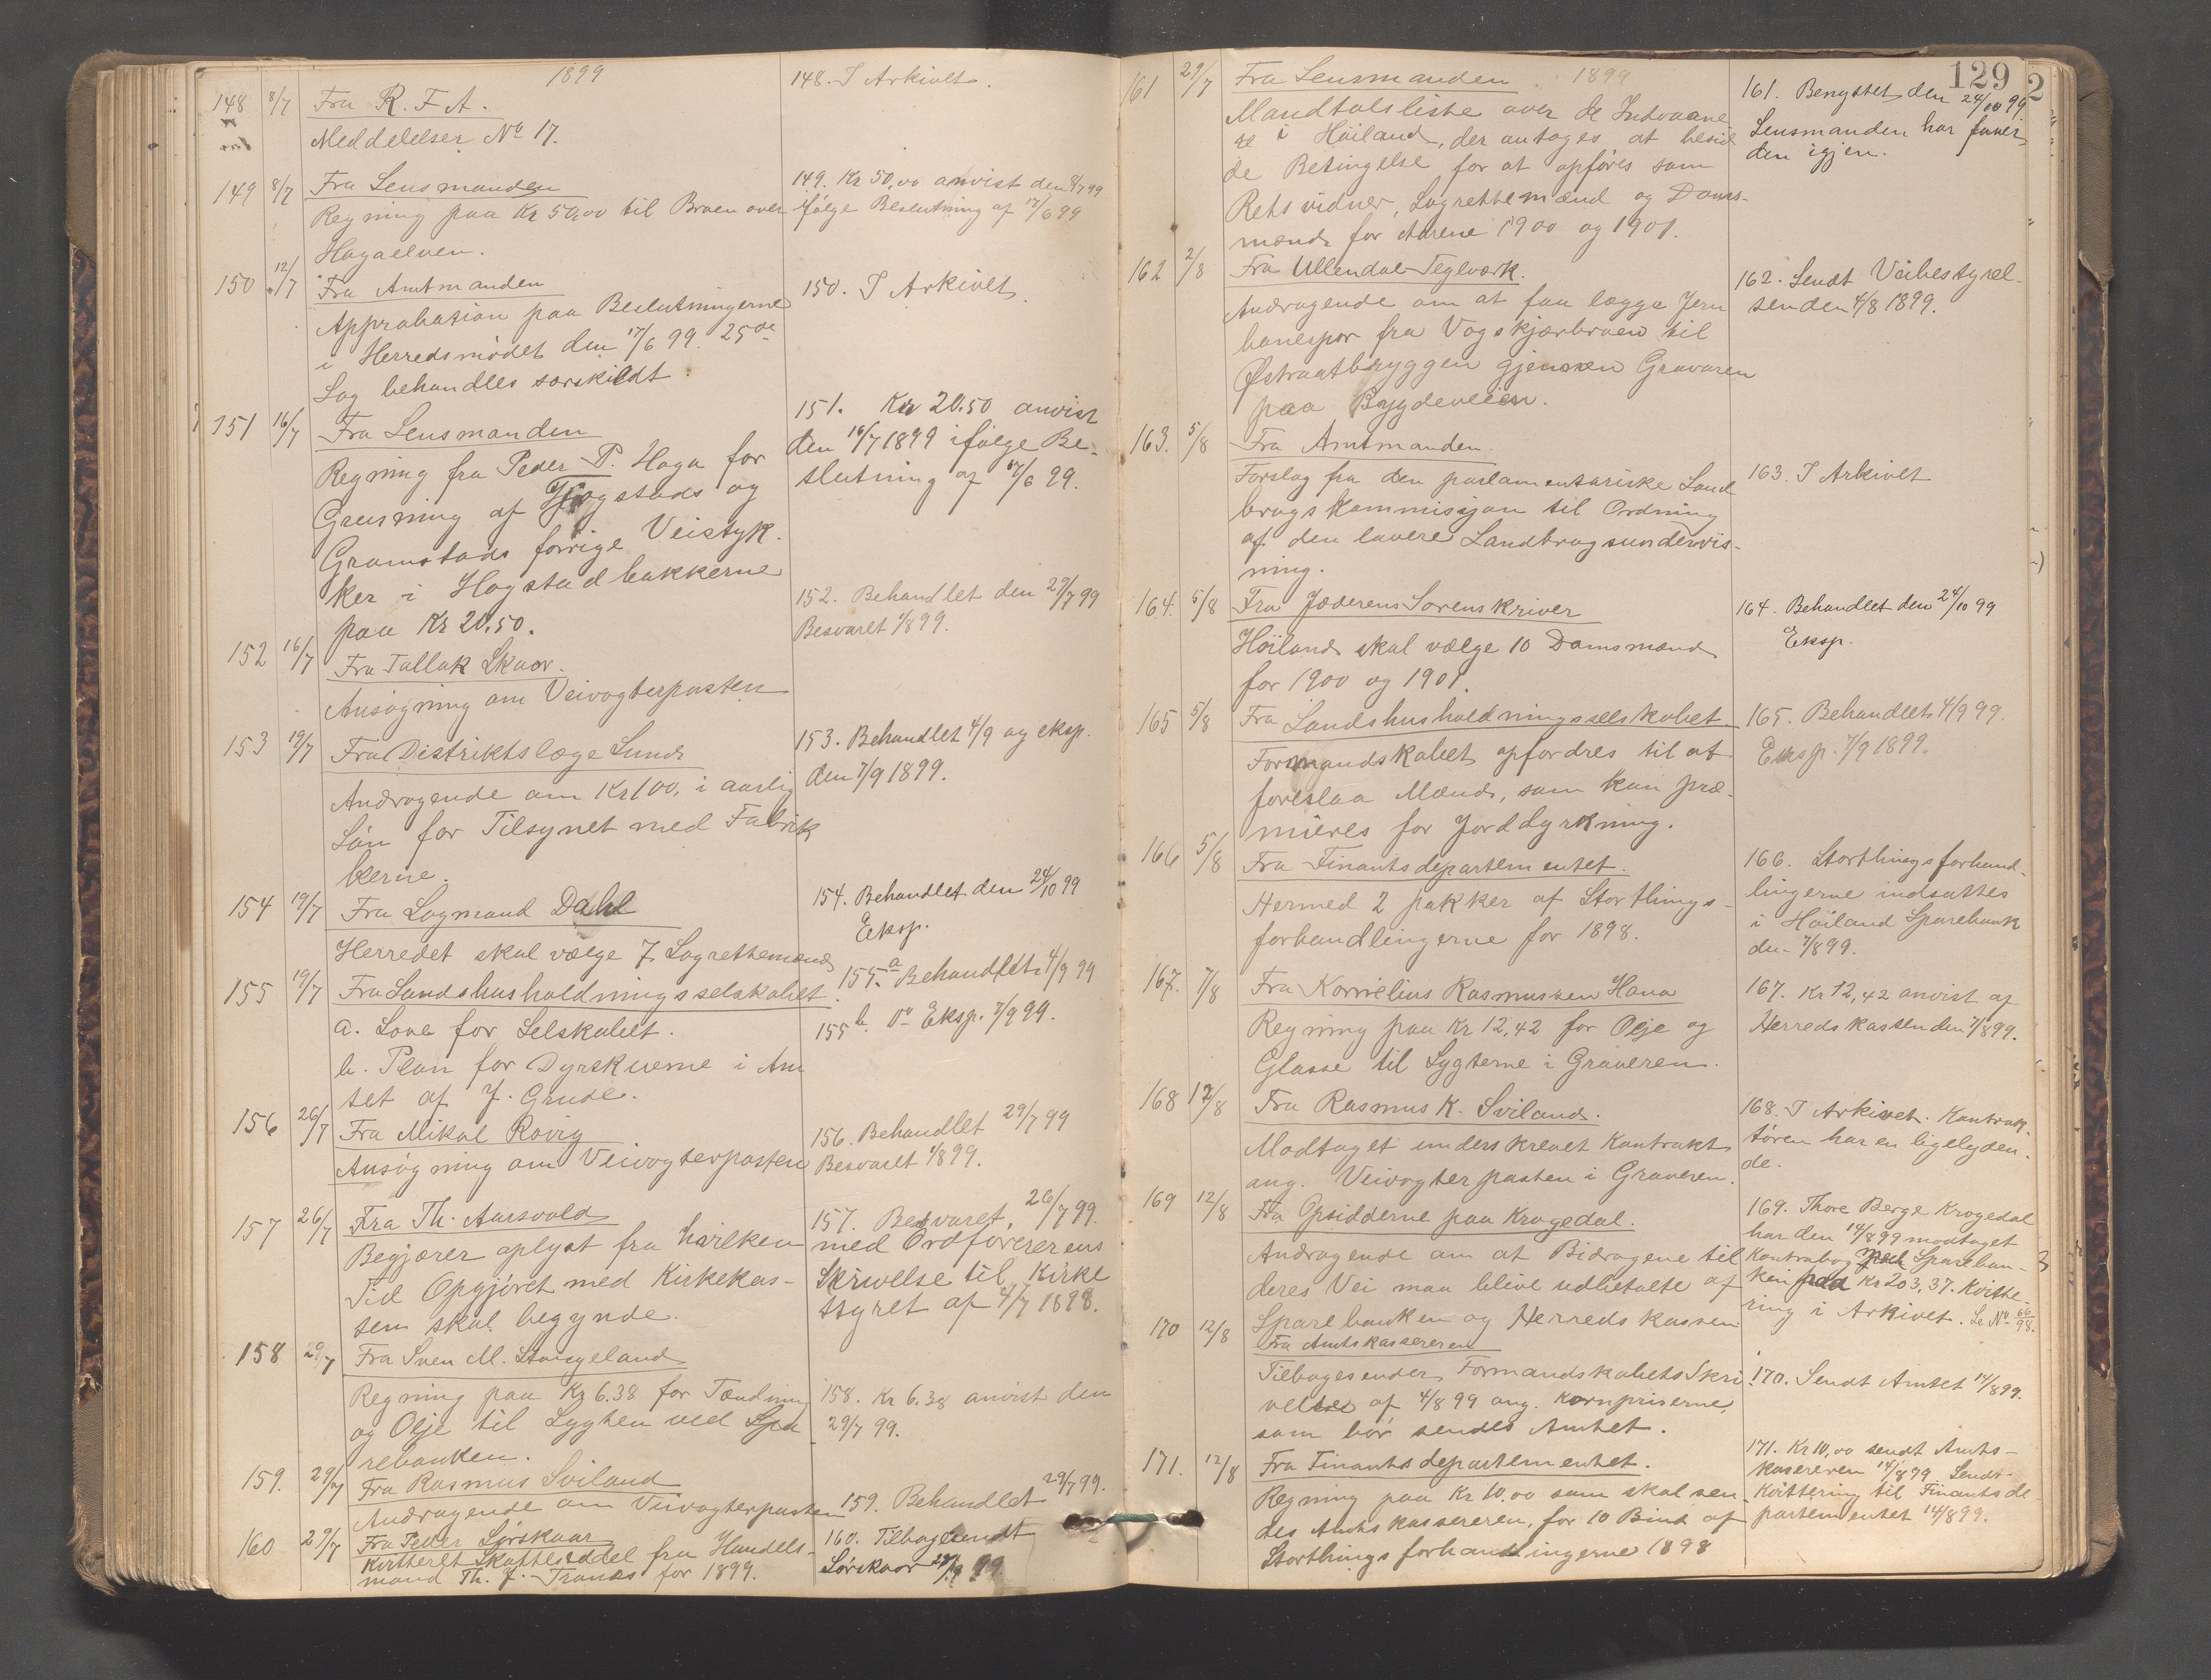 1899
148 8/7 Fra R. F. A.
Meddelelser No 17.
148. I Arkivet.
149 8/7 Fra Lensmanden
Regning paa Kr 50,00 til Broen over
Hagaelven.
149. Kr 50,00 anvist den 8/7 99
ifølge Beslutning af 17/6 99
150 12/7 Fra Amtmanden
Approbation paa Beslutningerne
i Herredsmødet den 17/6 99. 25de
Sag behandles særskildt.
150. I Arkivet.
151 16/7 Fra Lensmanden
Regning fra Peder P. Haga for
Grusning af Hogstads og
Gramstads forrige Veistyk-
ker i Hogstadbakkerne
paa Kr 20.50.
151. Kr 20.50 anvist
den 16/7 1899 ifølge Be-
slutning af 17/6 99.
152 16/7 Fra Tallak Skaar.
Ansøgning om Veivogterposten
152. Behandlet den 29/7 99
Besvaret 1/8 99.
153 19/7 Fra Distriktslæge Lund
Andragende om Kr 100, i aarlig
Løn for Tilsynet med Fabrik
kerne.
153. Behandlet 4/9 og eksp.
den 7/9 1899.
154 19/7 Fra Lagmand Dahl
Herredet skal vælge 7 Lagrettemænd
154. Behandlet den 24/10 99
Eksp.
155 19/7 Fra Landshusholdningsselskabet.
a. Love for Selskabet.
b. Plan for Dyrskuerne i Am
tet af J. Grude.
155a. Behandlet 4/9 99
155b. Do Eksp. 7/9 99.
156 26/7 Fra Mikal Rovig
Ansøgning om Veivogterposten
156. Behandlet 29/7 99
Besvaret 1/8 99.
157 26/7 Fra Th. Aarsvold
Begjærer oplyst fra hvilken
Tid Opgjøret med Kirkekas-
sen skal begynde.
157. Besvaret, 26/7 99.
med Ordførerens
Skrivelse til Kirke
tsyret af 4/7 1898.
158 29/7 Fra Sven M.
Regning paa Kr 6.38 for Tænding
og Olje til Lygten ved Spa
rebanken.
158. Kr 6.38 anvist den
29/7 99.
159. 29/7 Fra Rasmus Sviland
Andragende om Veivogterposten
159. Behandlet 29/7 99.
160 29/7 Fra Peder Sørskaar
Kvitteret Skatteseddel fra Handels-
mand Th. J. Tranås for 1899.
160. Tilbagesendt
Sørskaar 99
129
1899
161 29/7 Fra Lensmanden
Mandtalsliste over de Indvaane
re i Høiland, der antages at besid
de Betingelse for at opføres som
Retsvidner, Lagrettemænd og Doms-
mænd for Aarene 1900 og 1901.
161. Benyttet den 24/10 99
Lensmanden har faaet
den igjen.
162 2/8 Fra Ullendal Teglværk.
Andragende om at faa lægge Jern
banespor fra Vogskjærbroen til
Østraatbryggen gjennem Gravaren
paa Bygdeveien.
162. Sendt Veibestyrel-
sen den 4/8 1899.
163. 5/8 Fra Amtmanden.
Forslag fra den parlamentariske Land
brugskommissjon til Ordning
af den lavere Landbrugsundervis-
ning.
163. I Arkivet
164. 5/8 Fra Jæderens Sorenskriver
Høiland skal vælge 10 Domsmænd
for 1900 og 1901.
164. Behandlet den 24/10 99
Eksp.
165 5/8 Fra Landshusholdningsselskabet
Formandskabet opfordres til at
foreslaa Mænd, som kan præ-
mieres for Jorddyrkning.
165. Behandlet 4/9 99.
Eksp. 7/9 1899.
166 5/8 Fra Finantsdepartementet.
Hermed 2 pakker af Storthings-
forhandlingerne for 1898.
166. Storthingsforhand-
lingerne indsattes
i Høiland Sparebank
den 7/8 99.
167. 7/8 Fra Kornelius Rasmussen Hana
Regning paa Kr 12,42 for Olje og
Glasse til Lygterne i Graveren.
167. Kr 12,42 anvist af
Herredskassen den 7/8 99.
168 12/8 Fra Rasmus K. Sviland.
Modtaget underskrevet Kontrakt
ang. Veivogterposten i Graveren.
168. I Arkivet. Kontrak-
tøren har en ligelyden-
de.
169 12/8 Fra Opsidderne paa Krogedal.
Andragende om at Bidragene til
deres Vei maa blive udbetalte af
Sparebanken og Herredskassen
169. Thore Berge Krogedal
har den 14/8 99 modtaget
Kontrabog Spareban-
ken paa Kr 203,37. Kvitte-
ring i Arkivet. Se No 66/98.
170 12/8 Fra Amtskassereren
Tilbagesender Formandskabets Skri
velse af 4/8 99 ang. Kornpriserne,
som bør sendes Amtet.
170. Sendt Amtet 14/8 99.
171. 12/8 Fra Finantsdepartementet.
Regning paa Kr 10,00 som skal sen
des Amtskassereren, for 10 Bind af
Storthingsforhandlingerne 1898
171. Kr 10,00 sendt Amts-
kasereren 14/8 99. Sendt
Kvittering til Finantsde-
partementet 14/8 99.